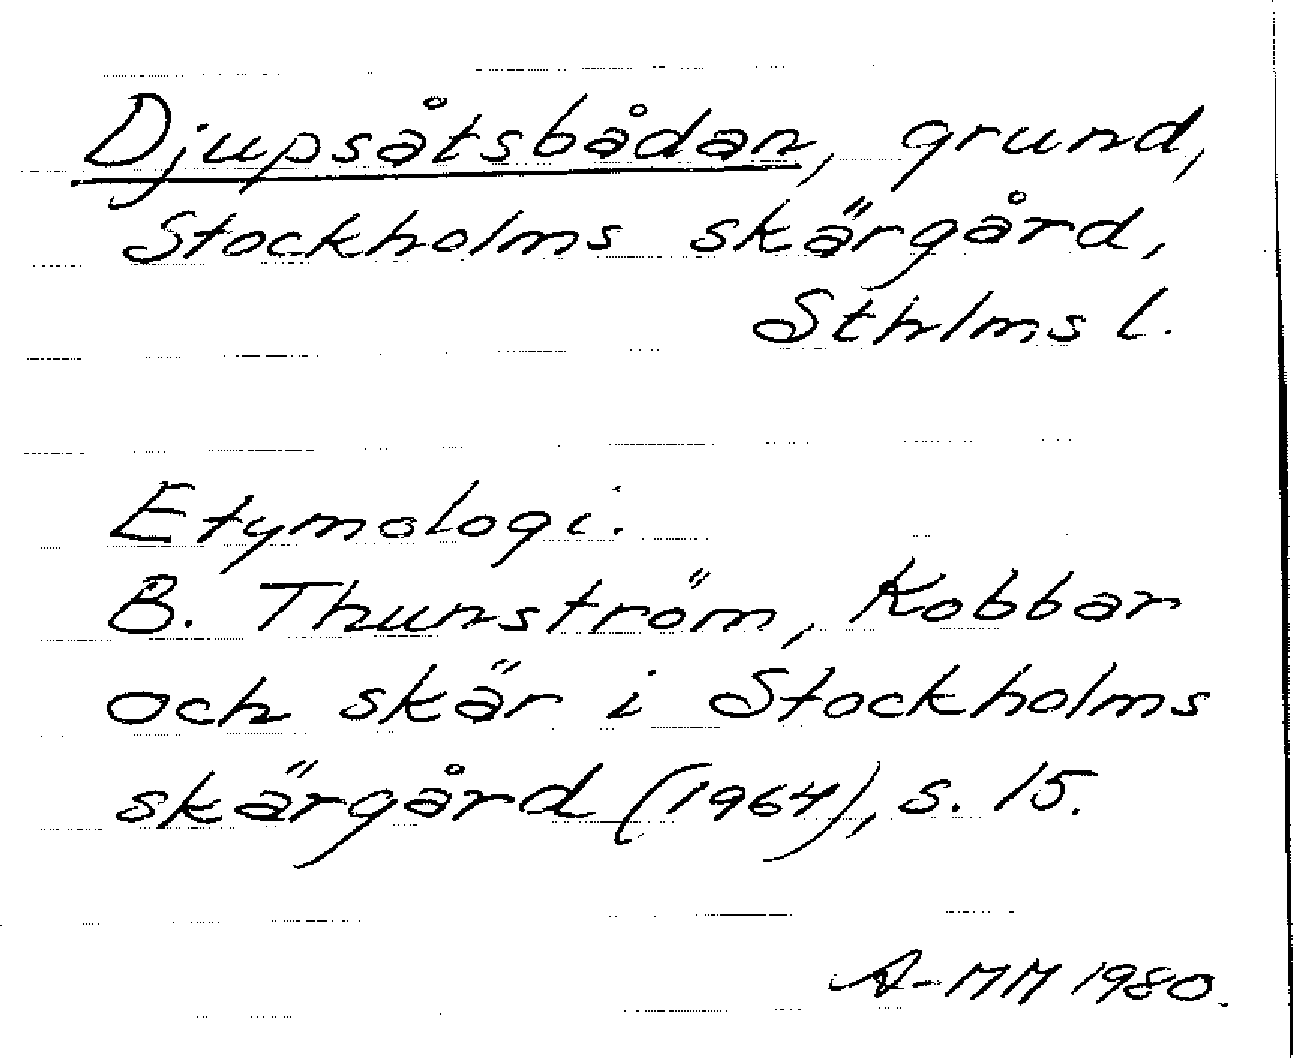 Djupsåtsbådan, grund,
Stockholms skärgård,
Sthlms l.
Etymologi.
B. Thunström, Kobbar
och skär i Stockholms
skärgård (1964), s. 15.
A-MM 1980.